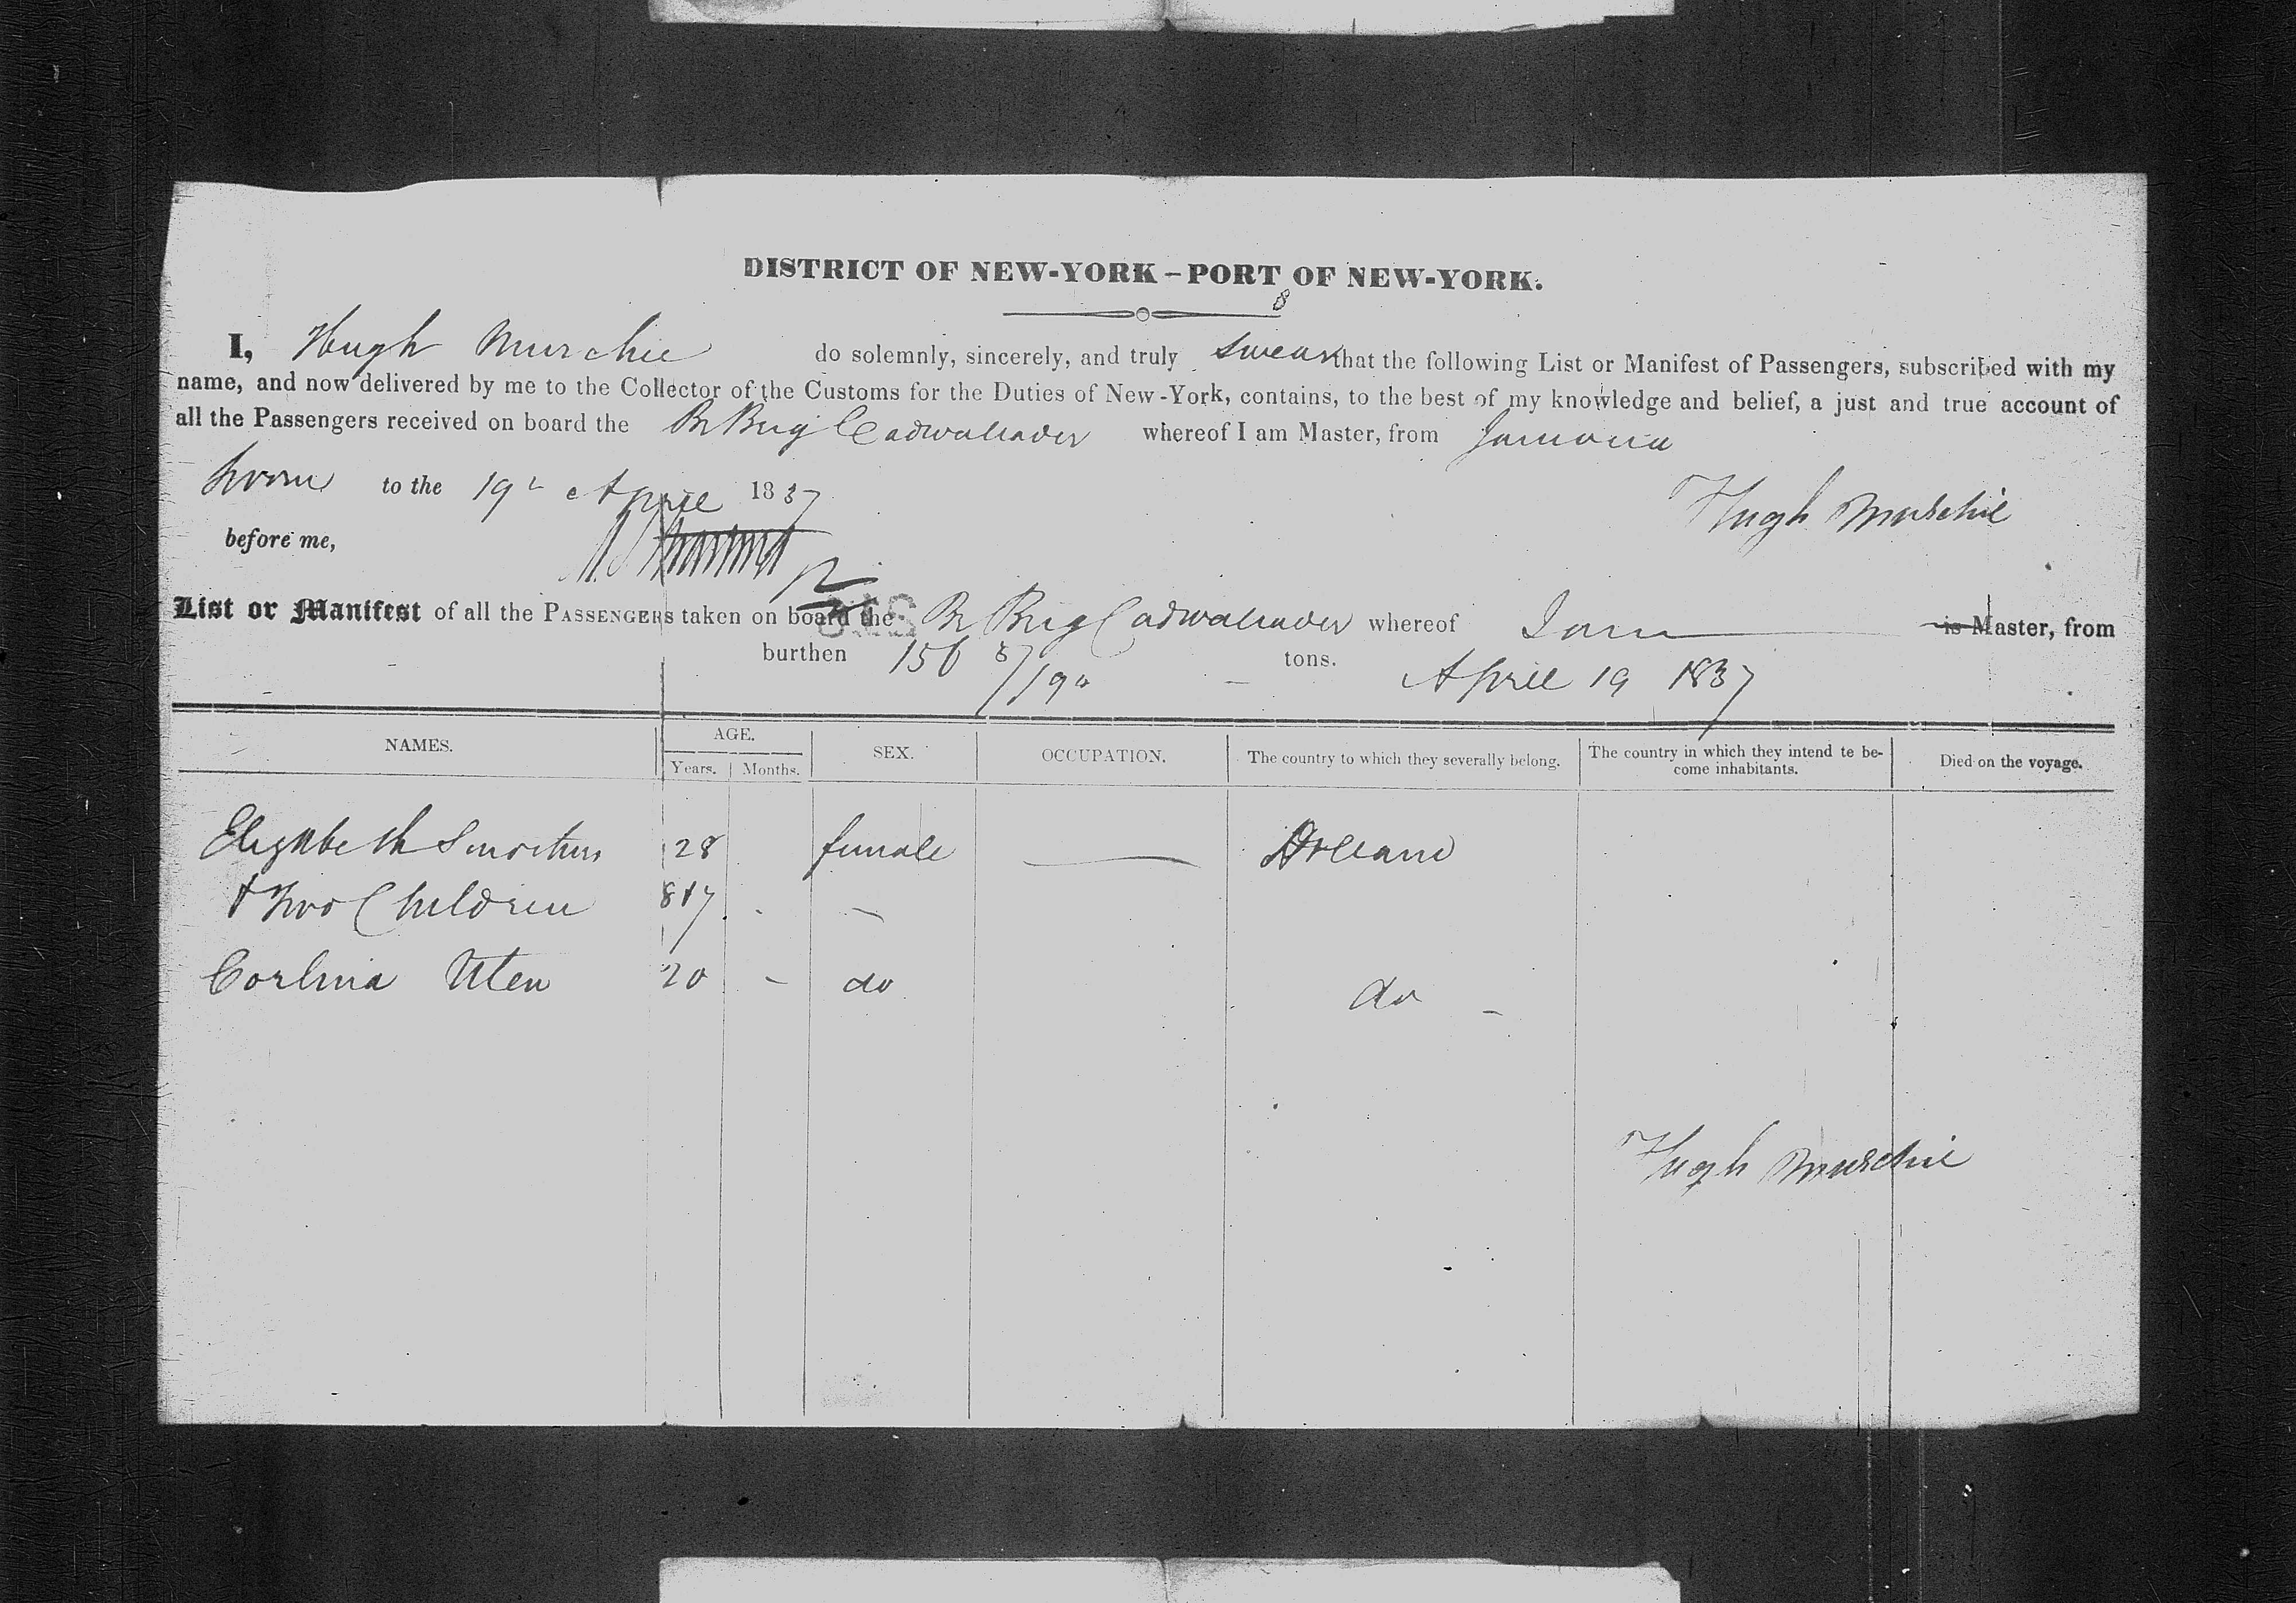 DISTRICT OF NEW-YORK – PORT OF NEW-YORK.
I, Hugh Murchie do solemnly, sincerely, and truly swear that the following List or Manifest of Passengers, subscribed with my
name, and now delivered by me to the Collector of the Customs for the Duties of New-York, contains, to the best of my knowledge and belief, a just and true account of
all the Passengers received on board the Br Brig Cadwallader whereof I am Master, from Jamaica
Sworn to the 19th April 1837
Hugh Murchie
before me,
List or Manifest of all the PASSENGERS taken on board the Br Brig Cadwallader whereof I am is Master, from
burthen 156 tons. April 19 1837
NAMES. AGE. SEX. OCCUPATION. The country to which they severally belong. The country in which they intend te be-come inhabitants. Died on the voyage.
Years. Months.
Elizabeth 28 female
& Two Children 8 & 7 –
20 – do do –
Hugh Murchie